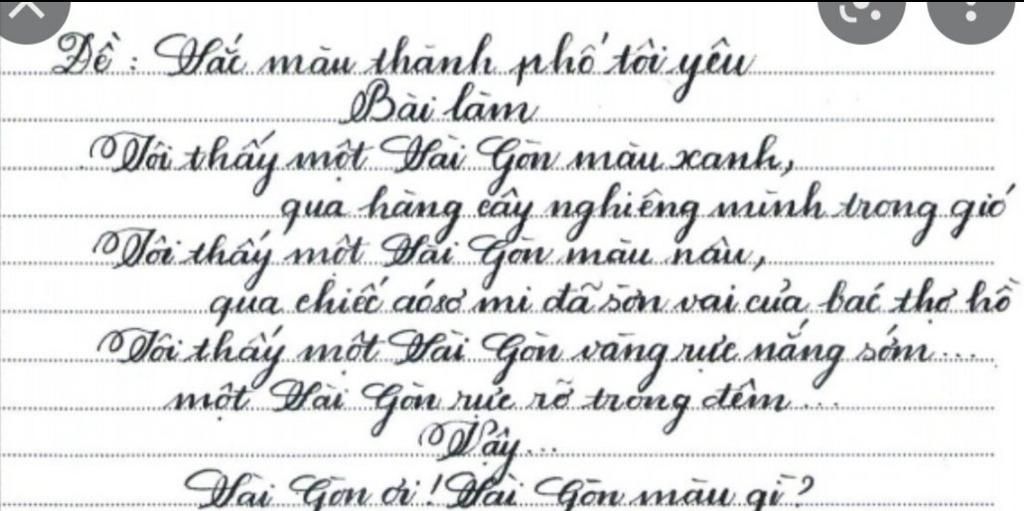 Đề : Sắc màu thành phố tôi yêu
Bài làm
Tôi thấy một Sài Gòn màu xanh,
qua hàng cây nghiêng mình trong gió
Tôi thấy một Sài Gòn màu nâu,
qua chiếc áo sơ mi đã sờn vai của bác thợ hồ
Tôi thấy một Sài Gòn vàng rực nắng sớm...
một Sài Gòn rực rỡ trong đêm...
Vậy...
Sài Gòn ơi! Sài Gòn màu gì?